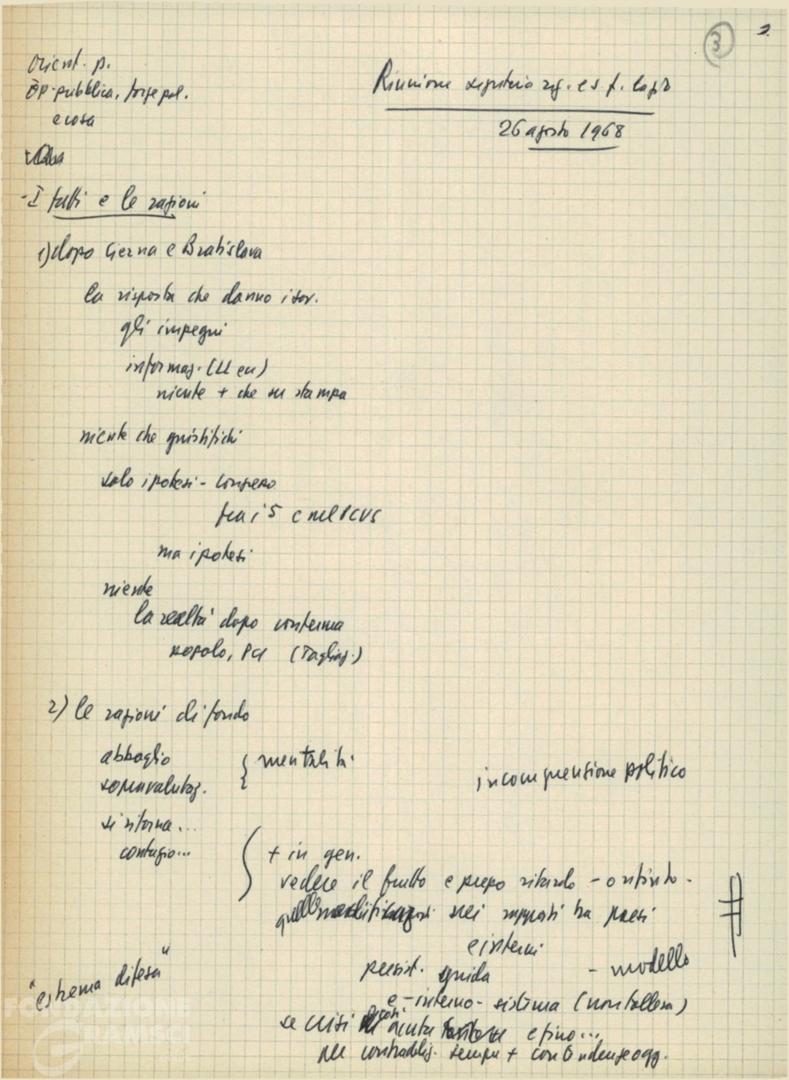 3
Orient. p.
op. pubblica, forze pol.
e cosa
Riunione segretari reg. e s f.
26 agosto 1968
- I fatti e le ragioni
1) dopo Cierna e Bratislava
la risposta che danno i sov.
gli impegni
informaz.
niente + che su stampa
niente che giustifichi
solo ipotesi - congresso
fra i 5 e nel PCUS
ma ipotesi
niente
la realtà dopo conferma
popolo, PC (Tagliaz.)
2) le ragioni di fondo
abbaglio
sopravalutaz.
{ mentalità
incomprensione politica
si ritorna...
contagio...
+ in gen.
vedere il frutto e ritardo - o rifiuto -
nei rapporti tra paesi
e interni
persist. guida - modello
"estrema difesa"
e - interno - sistema (non tollera)
se crisi acuta e fino...
per contraddiz. sempre + con tendenze ogg.